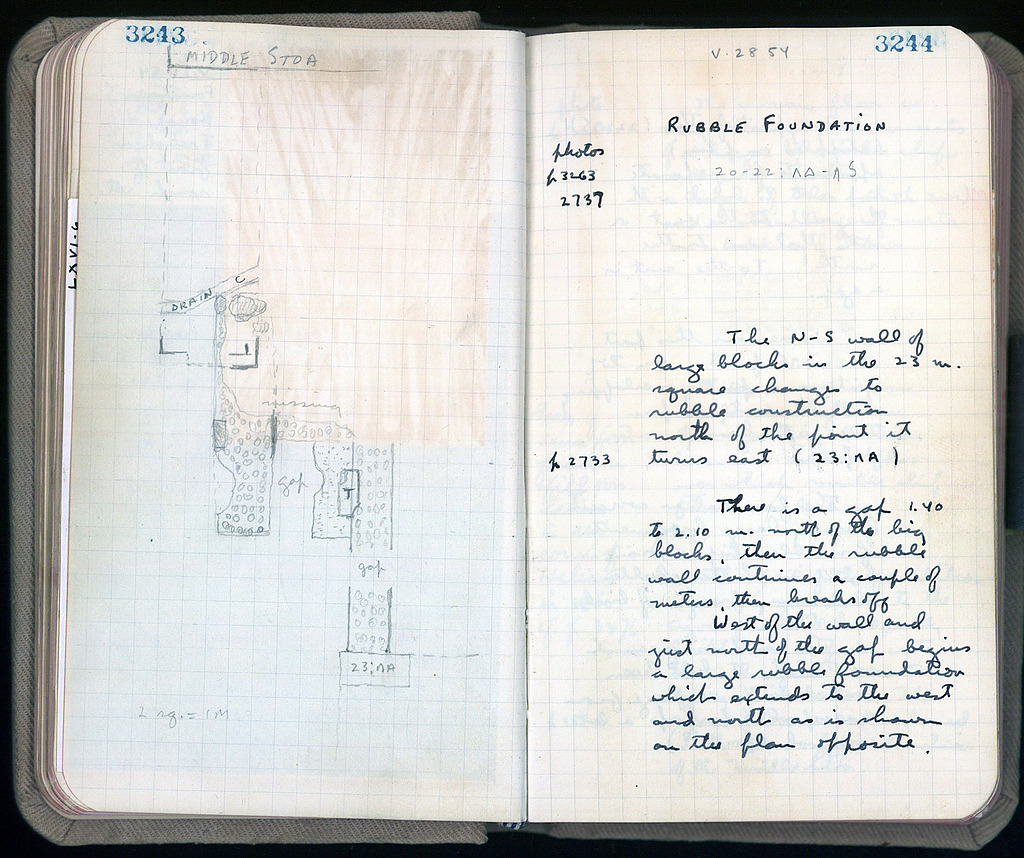 3243
MIDDLE STOA
LXVI-6
DRAIN C
missing
gap
gap
23:ΛA
2 sq. = 1M
3244
V·28 54
RUBBLE FOUNDATION
photos
p 3263
2737
20-22:ΛΔ-ΛS
The N-S wall of
large blocks in the 23 m.
square changes to
rubble construction
north of the point it
p 2733 turns east (23:ΛA)
There is a gap 1.40
to 2.10 m. north of the big
blocks, then the rubble
wall continues a couple of
meters, then breaks off
West of the wall and
just north of the gap begins
a large rubble foundation
which extends to the west
and north as is shown
on the plan opposite.